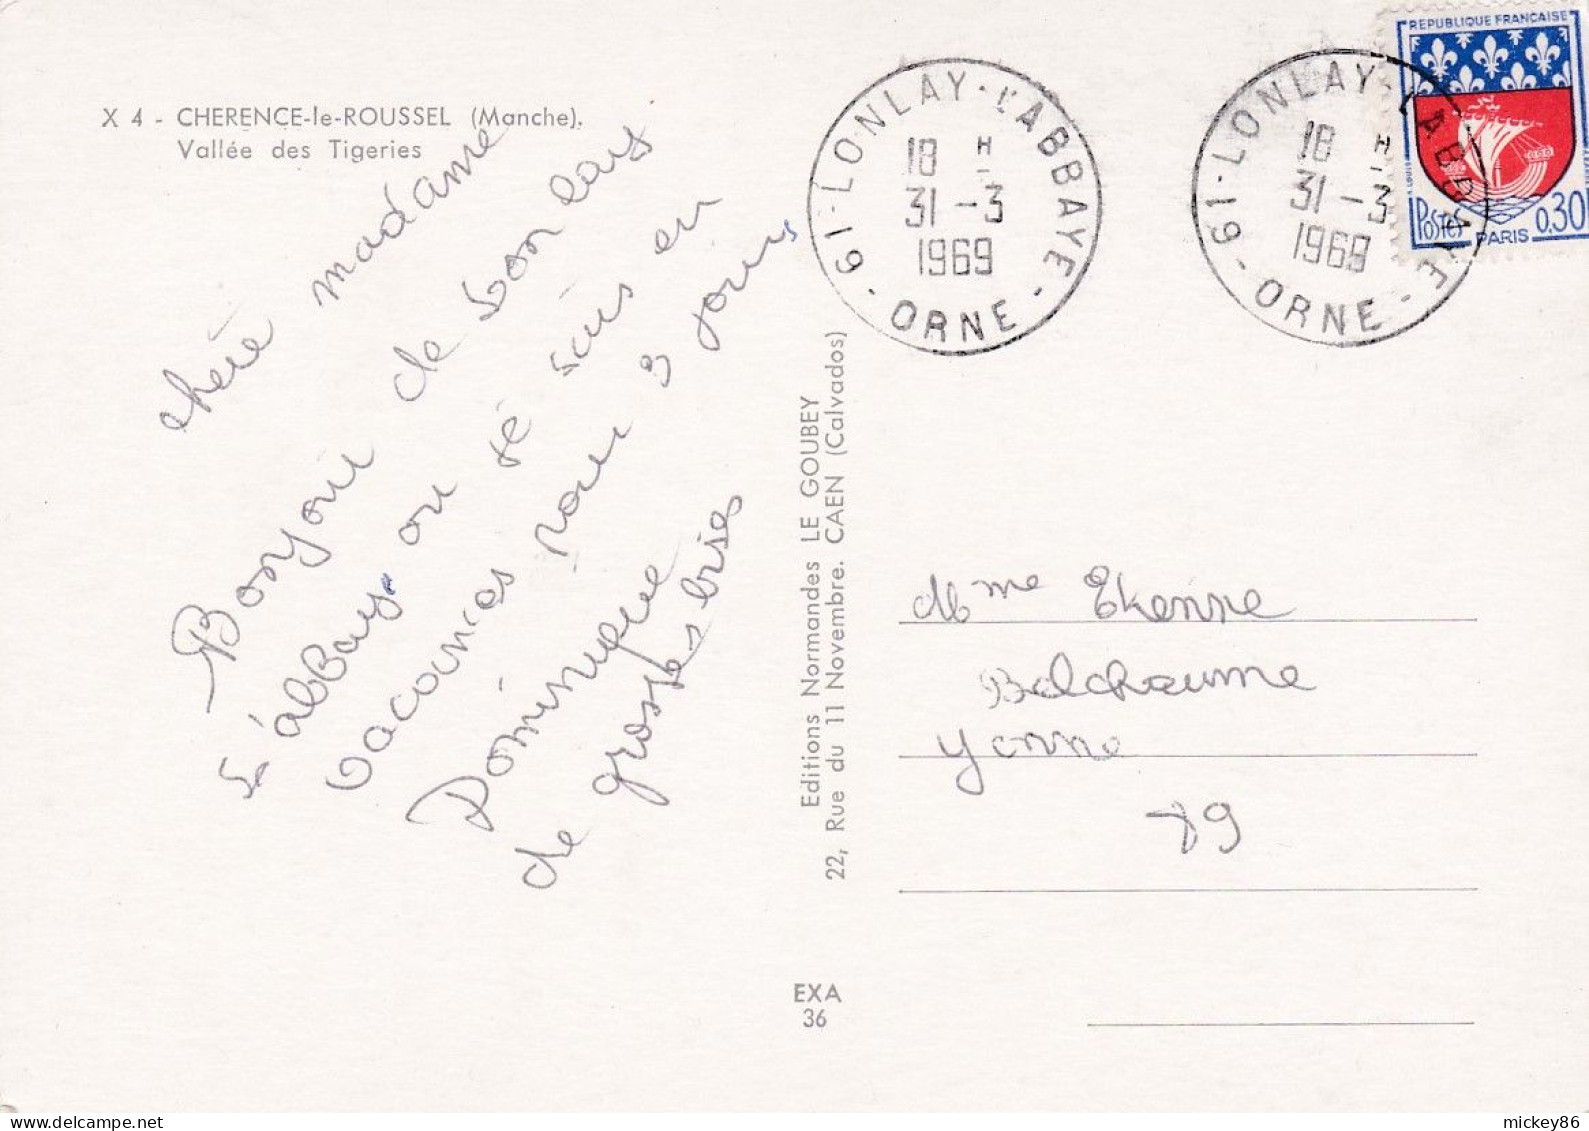 X 4 - CHERENCE-le-ROUSSEL (Manche).
Vallée des Tigeries
chère madame
Bonjour de Lonlay
L'abbay. on
vacances pour 3 jours
Dominique
de grosses bises
Editions Normandes LE GOUBEY
22, Rue du 11 Novembre. CAEN (Calvados)
EXA
36
61 - LONLAY - L'ABBAYE - ORNE
18 H
31 - 3
1969
61 - LONLAY - L'ABBAYE - ORNE
18 H
31 - 3
1969
REPUBLIQUE FRANÇAISE
Postes PARIS 0,30
Mme Etienne
Belchaume
yonne
89
mickey86